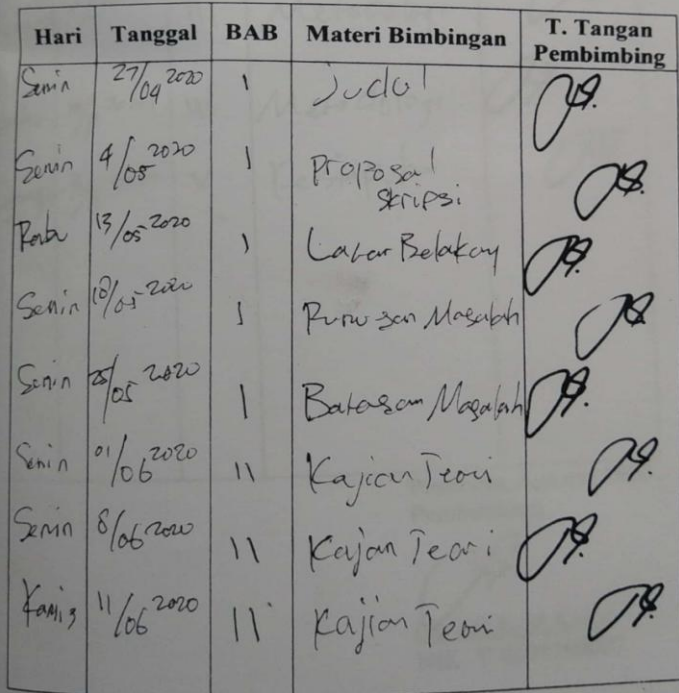 Hari Tanggal BAB Materi Bimbingan T. Tangan Pembimbing
Senin 27/04 2020 I Judul
Senin 4/05 2020 I Proposal
Skripsi
Rabu 13/05 2020 I Latar Belakang
Senin 18/05 2020 I Rumusan Masalah
Senin 25/05 2020 I Batasan Masalah
Senin 01/06 2020 II Kajian Teori
Senin 8/06 2020 II Kajian Teori
Kamis 11/06 2020 II Kajian Teori